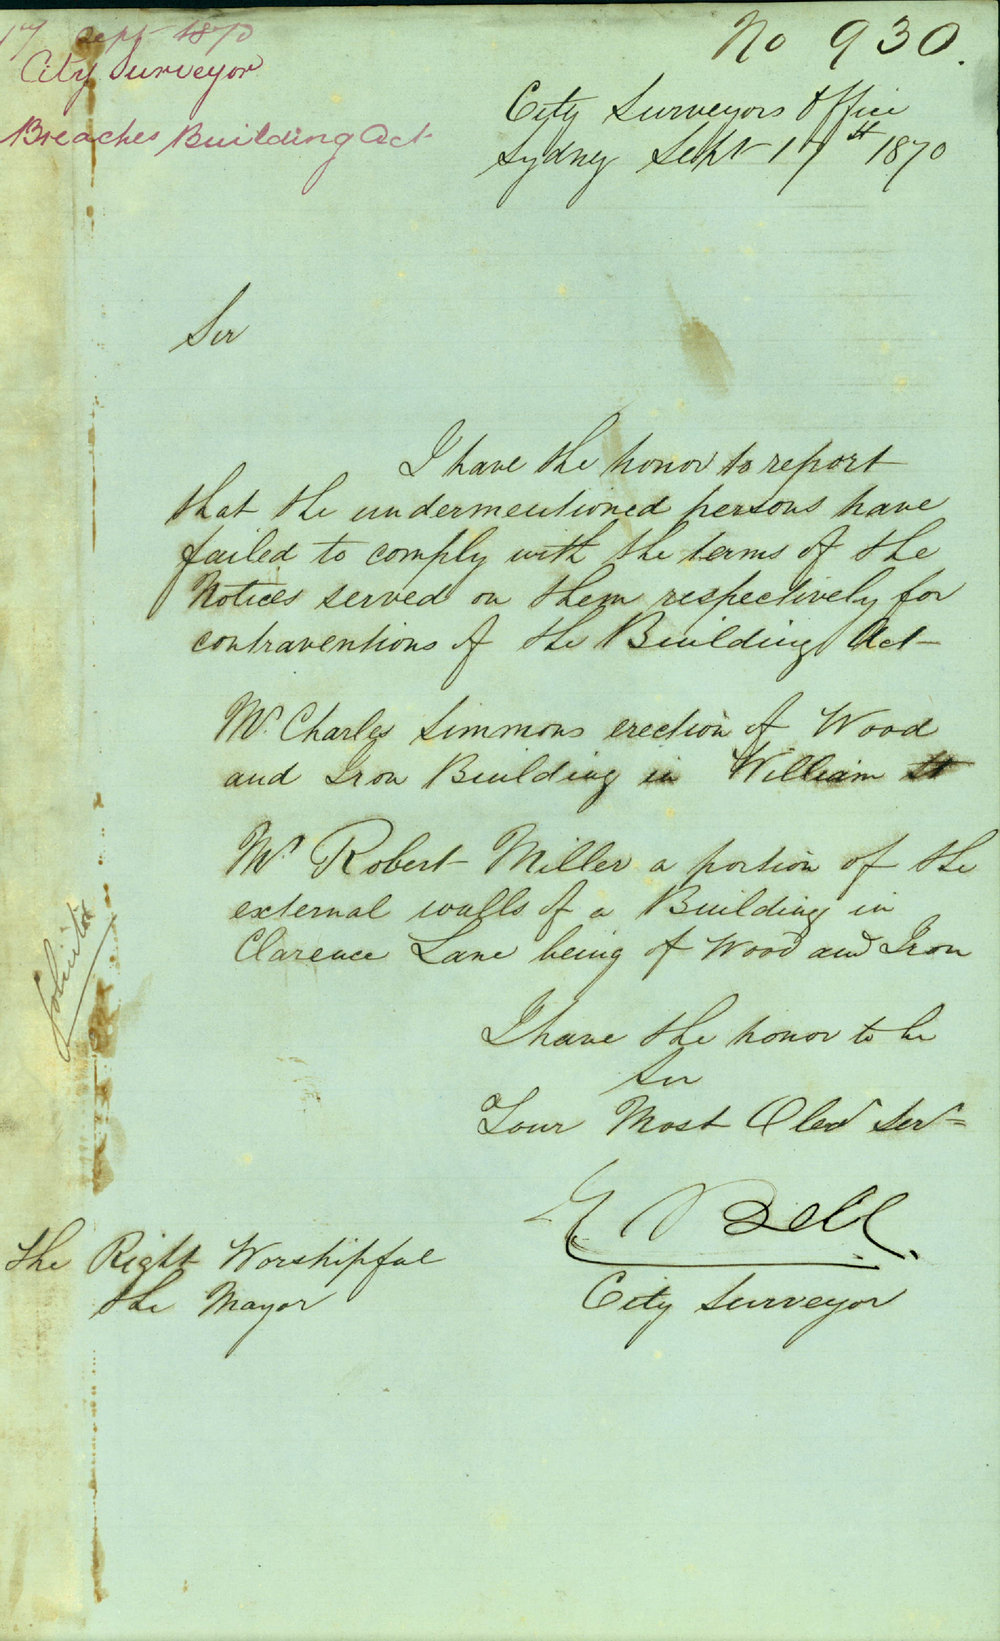 17 Sept 1870
City Surveyor
Breaches Building Act
No 930.
City Surveyors Office
Sydney Sept 17th 1870
Sir
I have the honor to report
that the undermentioned persons have
failed to comply with the terms of the
Notices served on them respectively for
contraventions of the Building Act
Mr. Charles Simmons erection of Wood
and Iron Building in William St
Mr. Robert Miller a portion of the
external walls of a Building in
Clarence Lane being of Wood and Iron
Solicitor
I have the honor to be
Sir
Your Most Obed Servt
E Bell.
City Surveyor
The Right Worshipful
the Mayor